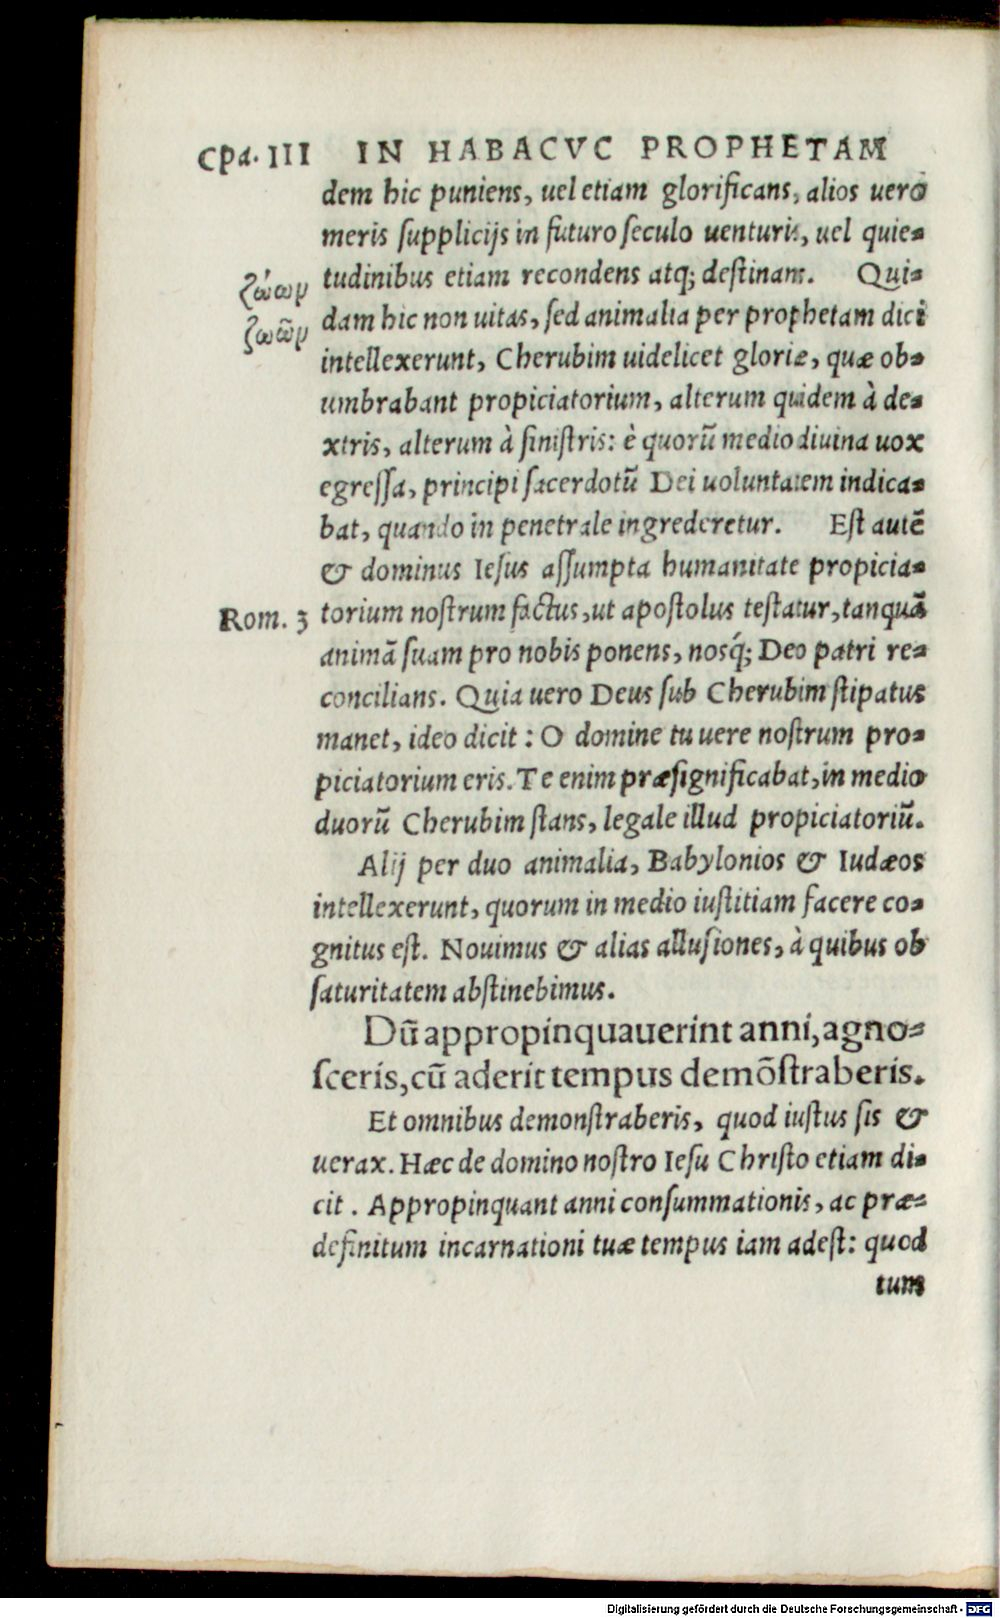 Cpa. III IN HABACVC PROPHETAM
dem hic puniens, uel etiam glorificans, alios uero
meris supplicijs in futuro seculo uenturis, uel quie-
tudinibus etiam recondens atq; destinans. Qui-
ζώων
dam hic non uitas, sed animalia per prophetam dici
ζωῶν
intellexerunt, Cherubim uidelicet gloriæ, quæ ob-
umbrabant propiciatorium, alterum quidem à de-
xtris, alterum à sinistris: è quorũ medio diuina uox
egressa, principi sacerdotũ Dei uoluntatem indica-
bat, quando in penetrale ingrederetur. Est autẽ
& dominus Iesus assumpta humanitate propicia-
Rom. 3 torium nostrum factus, ut apostolus testatur, tanquã
animã suam pro nobis ponens, nosq́; Deo patri re-
concilians. Quia uero Deus sub Cherubim stipatus
manet, ideo dicit : O domine tu uere nostrum pro-
piciatorium eris. Te enim præsignificabat, in medio
duorũ Cherubim stans, legale illud propiciatoriũ.
Alij per duo animalia, Babylonios & Iudæos
intellexerunt, quorum in medio iustitiam facere co-
gnitus est. Nouimus & alias allusiones, à quibus ob
saturitatem abstinebimus.
Dũ appropinquauerint anni, agno-
sceris, cũ aderit tempus demõstraberis.
Et omnibus demonstraberis, quod iustus sis &
uerax. Hæc de domino nostro Iesu Christo etiam di-
cit . Appropinquant anni consummationis, ac præ-
definitum incarnationi tuæ tempus iam adest: quod
tum
Digitalisierung gefördert durch die Deutsche Forschungsgemeinschaft - DFG